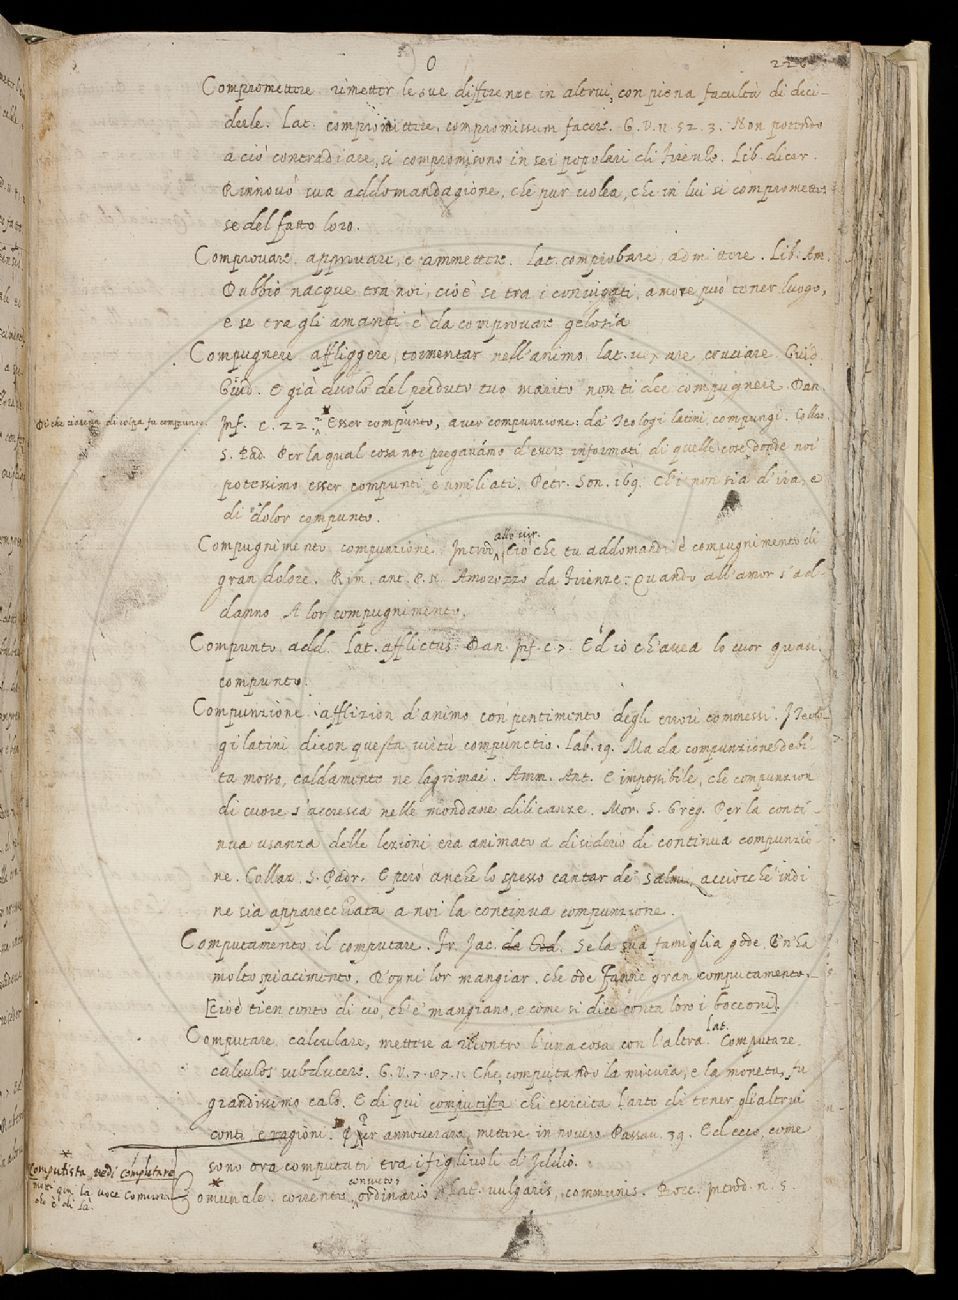 O
Compromettere rimetter le sue differenze in altrui, con piena facultà di deci-
derle. Lat. compromittere, compromissum facere. G. V. 11. 52. 3. Non potendo
a ciò contradiare, si compromisono in sei popolari di Firenze. Lib. dicer.
Rinnovò sua addomandagione, che pur volea, che in lui si compromettes
se del fatto loro.
Comprovare. approvare, e ammettere. lat. comprobare, admittere. Lib. Am.
Dubbio nacque tra noi, cioè se tra i coniugati, amore può tener luogo,
e se tra gli amanti è da comprovare gelosia
Compugnere affliggere, tormentar nell'animo. lat. vexare cruciare. Guid.
Giud. E già duolo del perduto tuo marito non ti dee compugnere. Dan.
Di che ciascun di colpa fu compunto.
Inf. c. 22. Esser compunto, aver compunzione. da Teologi latini compungi. Collaz.
S. Pad. Per la qual cosa noi pregavamo d'esere informati di quelle cose, donde noi
potessimo esser compunti e umiliati. Petr. Son. 169. Chi non sia d'ira, e
di dolor compunto.
Compugnimento compunzione. Introd. alle vir. Ciò che tu addomandi è compugnimento di
gran dolore. Rim. ant. P. N. Amorozzo da Firenze: Quando all'amor s'ad-
danno A lor compugnimento.
Compunto add. lat. afflictus. Dan. Inf. c. 7. Ed io ch'avea lo cuor quasi
compunto.
Compunzione. afflizion d'animo con pentimento degli errori commessi. I Teolo-
gi latini dicon questa virtù compunctio. Lab. 19. Ma da compunzione debi-
ta mosso, caldamente ne lagrimai. Amm. Ant. E impossibile, che compunzion
di cuore s'accresca nelle mondane dilicanze. Mor. S. Greg. Per la conti-
nua usanza delle lezioni era animato a disiderio di continua compunzio-
ne. Collaz. S. Padr. E però anche lo spesso cantar de' Salmi, acciocchè indi
ne sia apparecchiata a noi la continua compunzione.
Computamento il computare. Fr. Jac. da Tod. Se la sua famiglia gode, E n'ha
molto piacimento. D'ogni lor mangiar, che ode Fanne gran computamento.
[cioè tien conto di ciò, ch'e' mangiano, e come si dice conta loro i bocconi].
Computare. calculare, mettere a riscontro l'una cosa con l'altra. lat. Computare.
calculos subducere. G. V. 7. 107. 1. Che, computando la misura, e la moneta, fu
grandissimo caro. E di qui computista chi esercita l'arte di tener gli altrui
conti, e ragioni. Per annoverare, mettere in novero. Passav. 39. Ed ecco, come
sono ora computati tra i figliuoli d'Iddio.
Computista, vedi computare
Comunale. corrente, consueto, ordinario. Lat. vulgaris, communis. Bocc. Introd. n. 5.